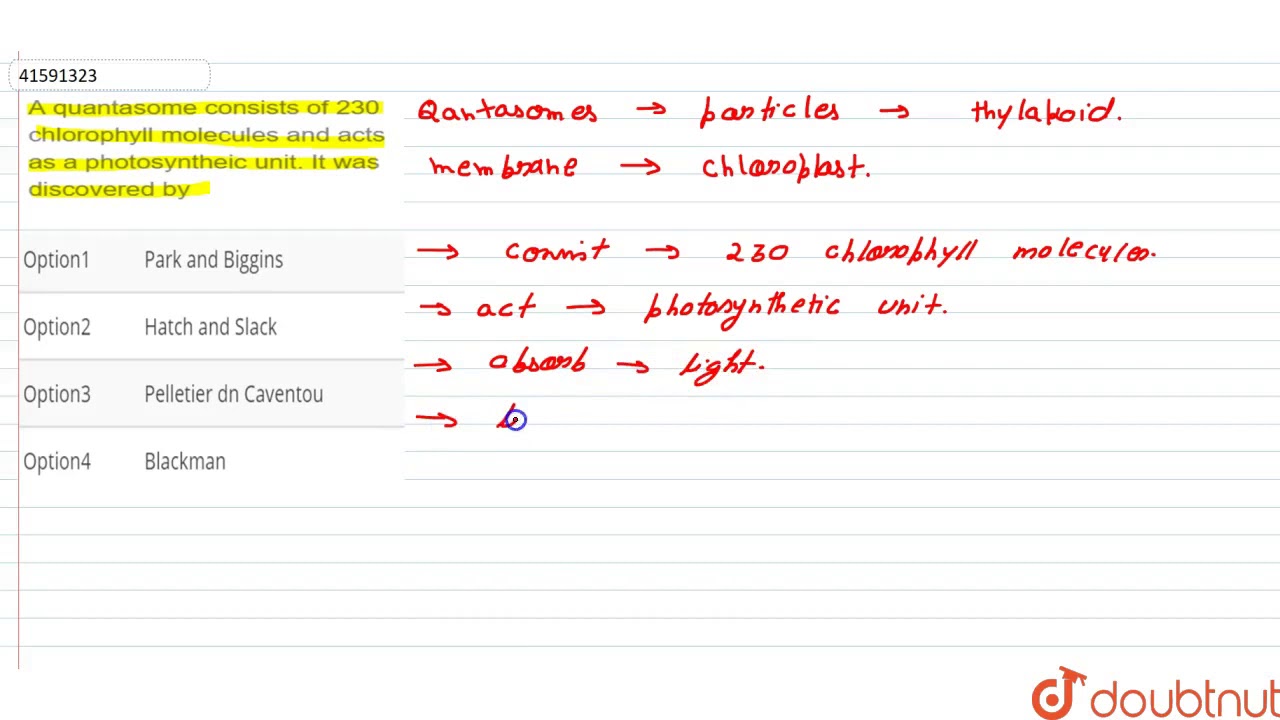 41591323
A quantasome consists of 230
chlorophyll molecules and acts
as a photosyntheic unit. It was
discovered by
Option1 Park and Biggins
Option2 Hatch and Slack
Option3 Pelletier dn Caventou
Option4 Blackman
Qantasomes → particles → thylakoid.
membrane → chloroplast.
→ consist → 230 chlorophyll molecules.
→ act → photosynthetic unit.
→ absorb → light.
→
doubtnut